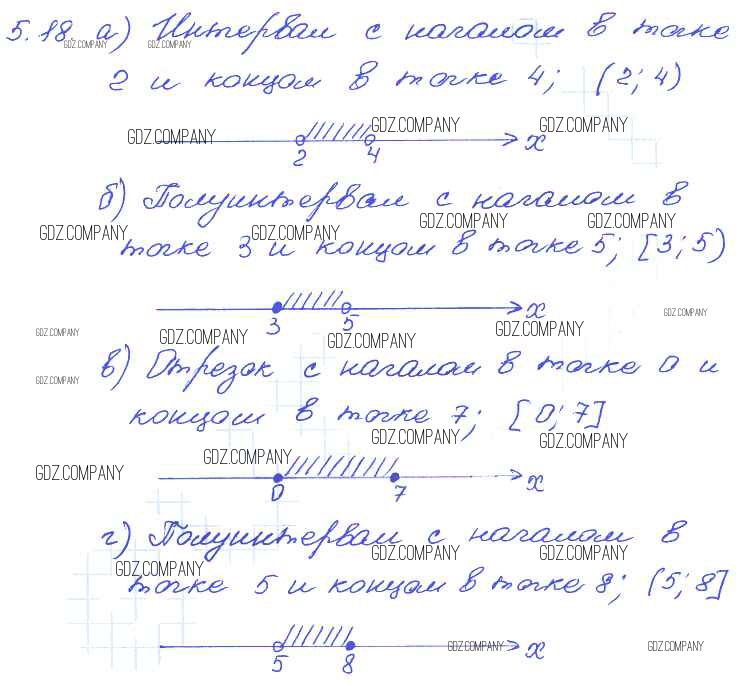 5.18. а) Интервал с началом в точке
GDZ.COMPANY GDZ.COMPANY
2 и концом в точке 4; (2; 4)
GDZ.COMPANY GDZ.COMPANY GDZ.COMPANY
2 4 x
б) Полуинтервал с началом в
GDZ.COMPANY GDZ.COMPANY GDZ.COMPANY GDZ.COMPANY
точке 3 и концом в точке 5; [3; 5)
3 5 x
GDZ.COMPANY
GDZ.COMPANY GDZ.COMPANY GDZ.COMPANY GDZ.COMPANY
в) Отрезок с началом в точке 0 и
GDZ.COMPANY
концом в точке 7; [0; 7]
GDZ.COMPANY GDZ.COMPANY
GDZ.COMPANY GDZ.COMPANY
0 7 x
г) Полуинтервал с началом в
GDZ.COMPANY GDZ.COMPANY GDZ.COMPANY
точке 5 и концом в точке 8; (5; 8]
5 8 x
GDZ.COMPANY GDZ.COMPANY